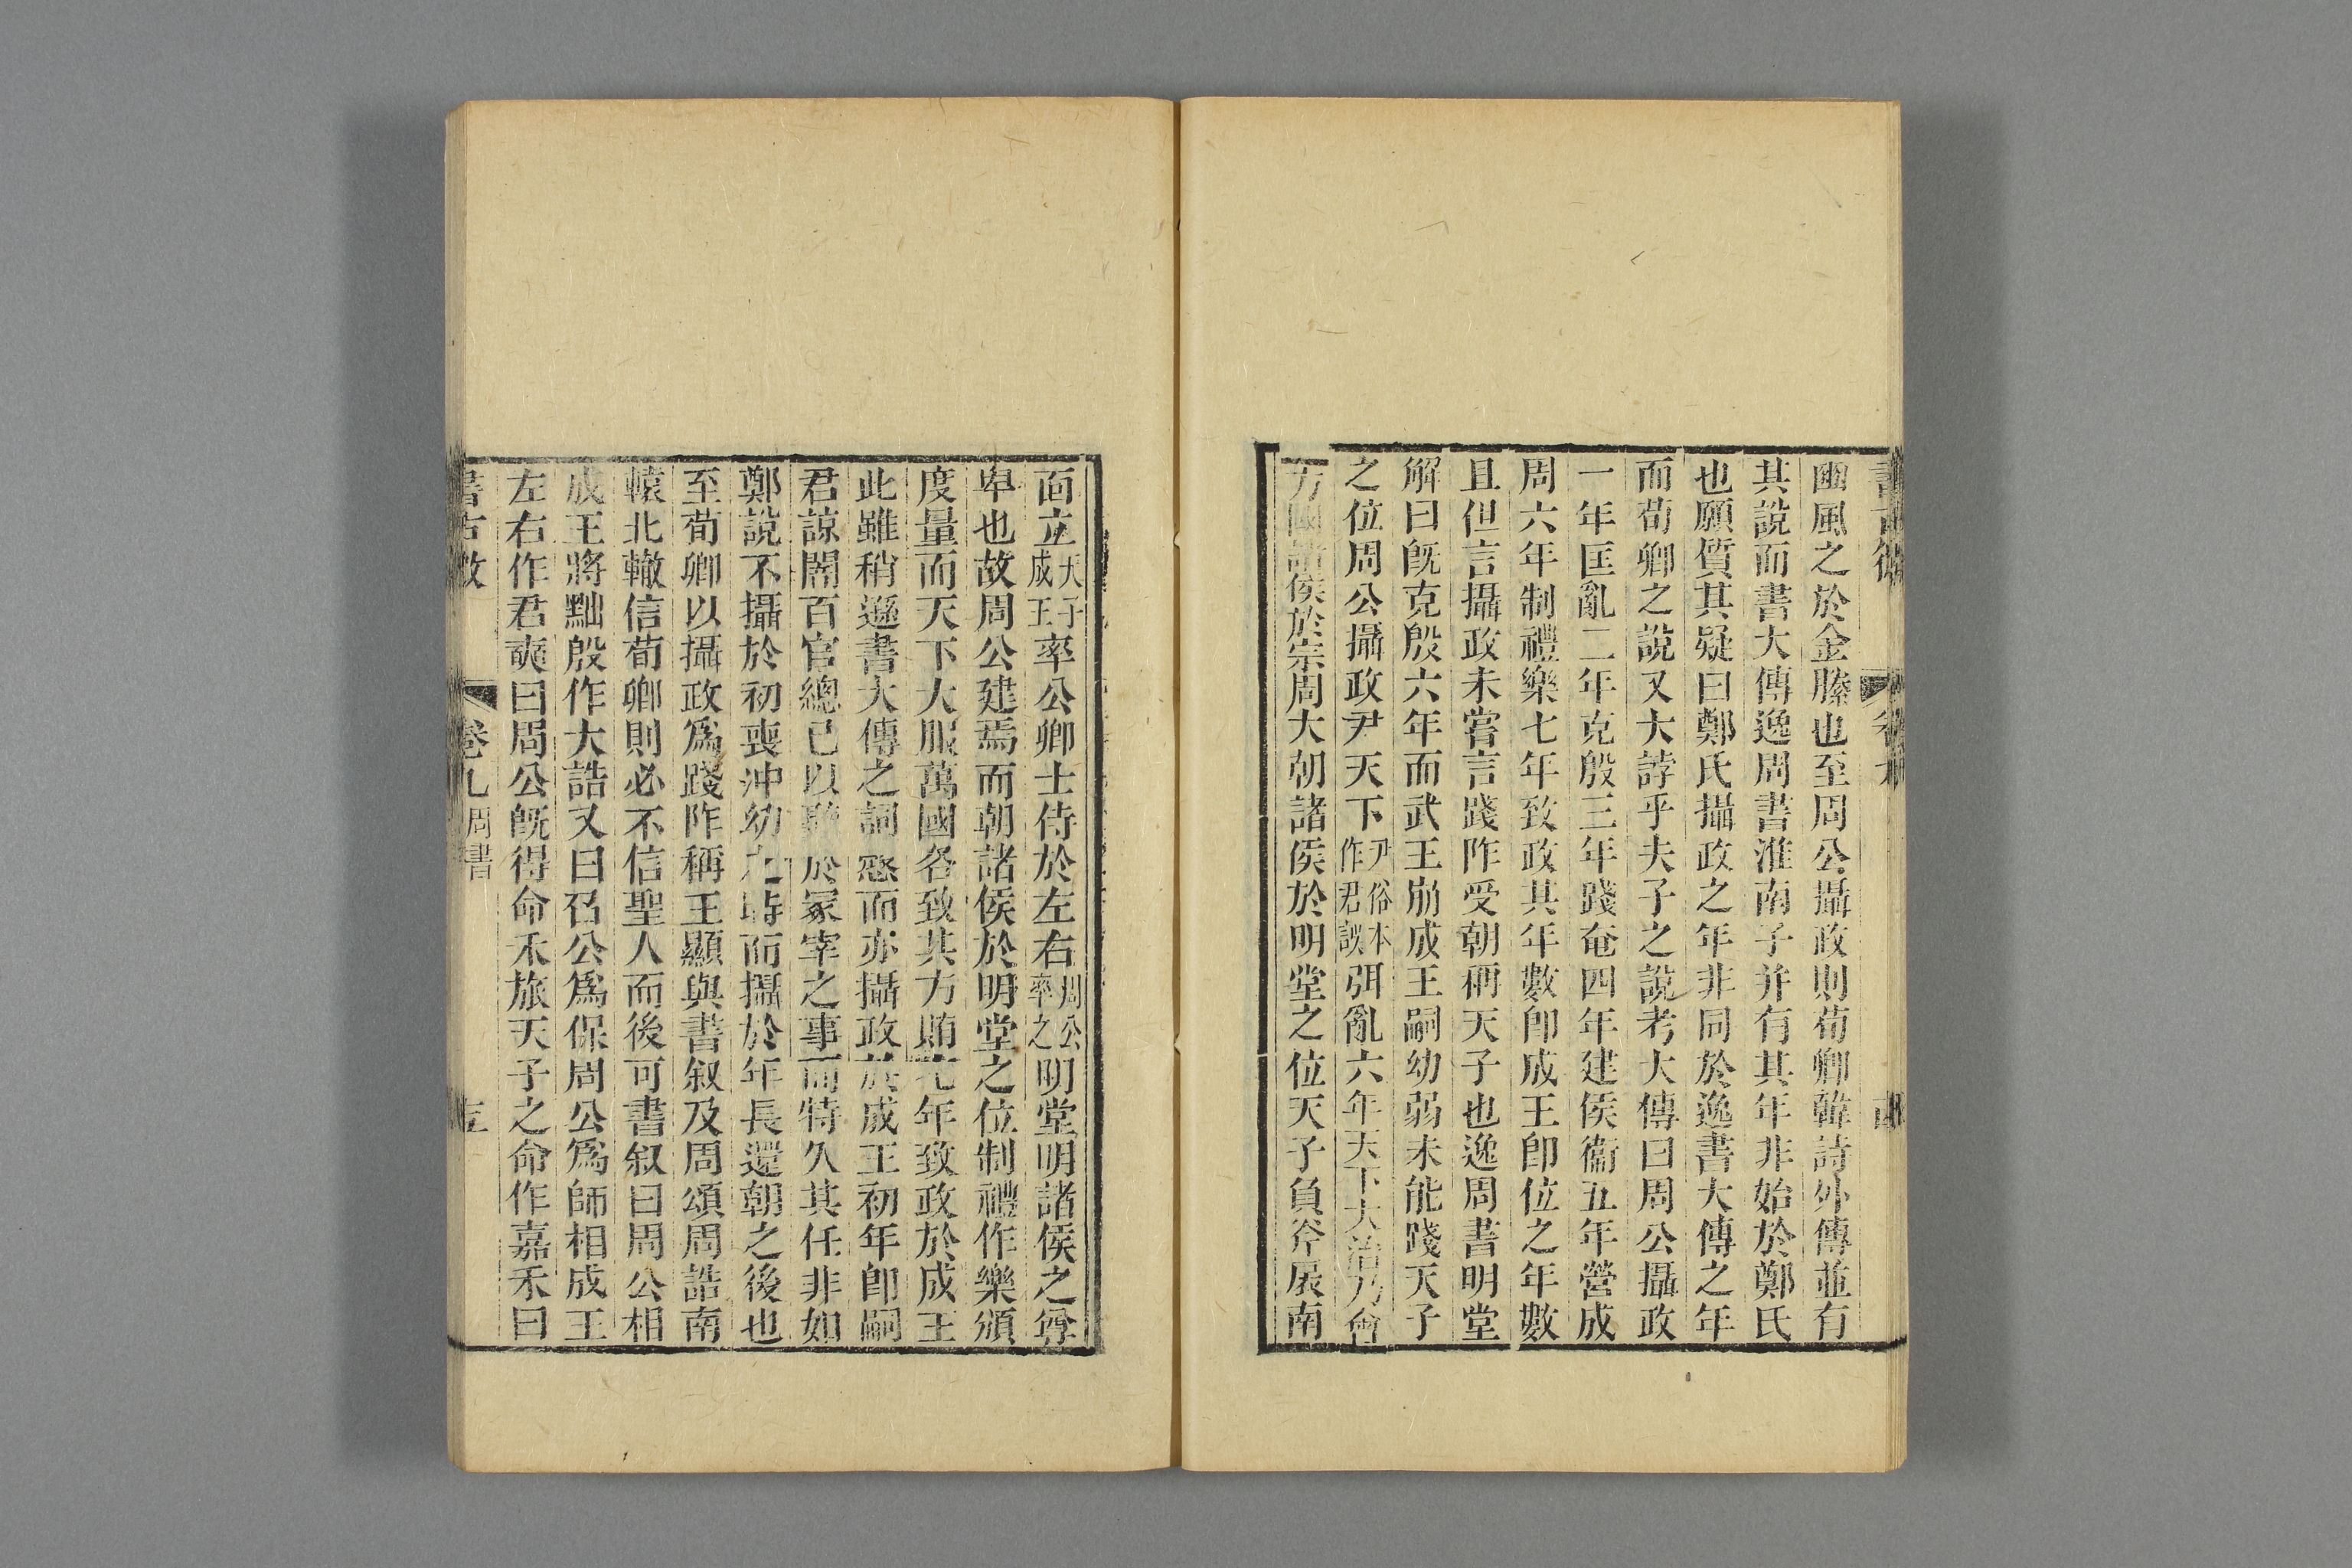 豳風之於金縢也至周公攝政則荀卿韓詩外傳並有
其說而書大傳逸周書淮南子并有其年非始於鄭氏
也願質其疑曰鄭氏攝政之年非同於逸書大傳之年
而荀卿之說又大誖乎夫子之說考大傳曰周公攝政
一年匡亂二年克殷三年踐奄四年建侯衞五年營成
周六年制禮樂七年致政其年數卽成王卽位之年數
且但言攝政未嘗言踐阼受朝稱天子也逸周書明堂
解曰旣克殷六年而武王崩成王嗣幼弱未能踐天子
之位周公攝政尹天下尹俗本作君誤弭亂六年天下大治乃會
方國諸侯於宗周大朝諸侯於明堂之位天子負斧扆南
面立天子成王率公卿士侍於左右周公率之明堂明諸侯之尊
卑也故周公建焉而朝諸侯於明堂之位制禮作樂頒
度量而天下大服萬國各致其方賄七年致政於成王
此雖稍遜書大傳之詞慤而亦攝政於成王初年卽嗣
君諒闇百官總己以聽於冢宰之事而特久其任非如
鄭說不攝於初喪沖幼之時而攝於年長還朝之後也
至荀卿以攝政爲踐阼稱王顯與書叙及周頌周誥南
轅北轍信荀卿則必不信聖人而後可書叙曰周公相
成王將黜殷作大誥又曰召公爲保周公爲師相成王
左右作君奭曰周公旣得命禾旅天子之命作嘉禾曰
書古微
卷九 周書